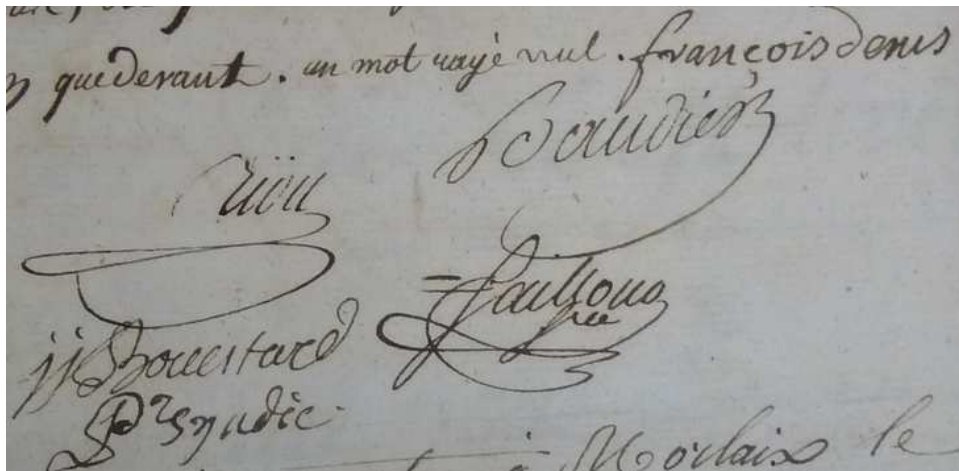 que devant. un mot rayé nul. françois denis
Beaudier
riou
jjBouestard
Pr Syndic.
Morlaix le